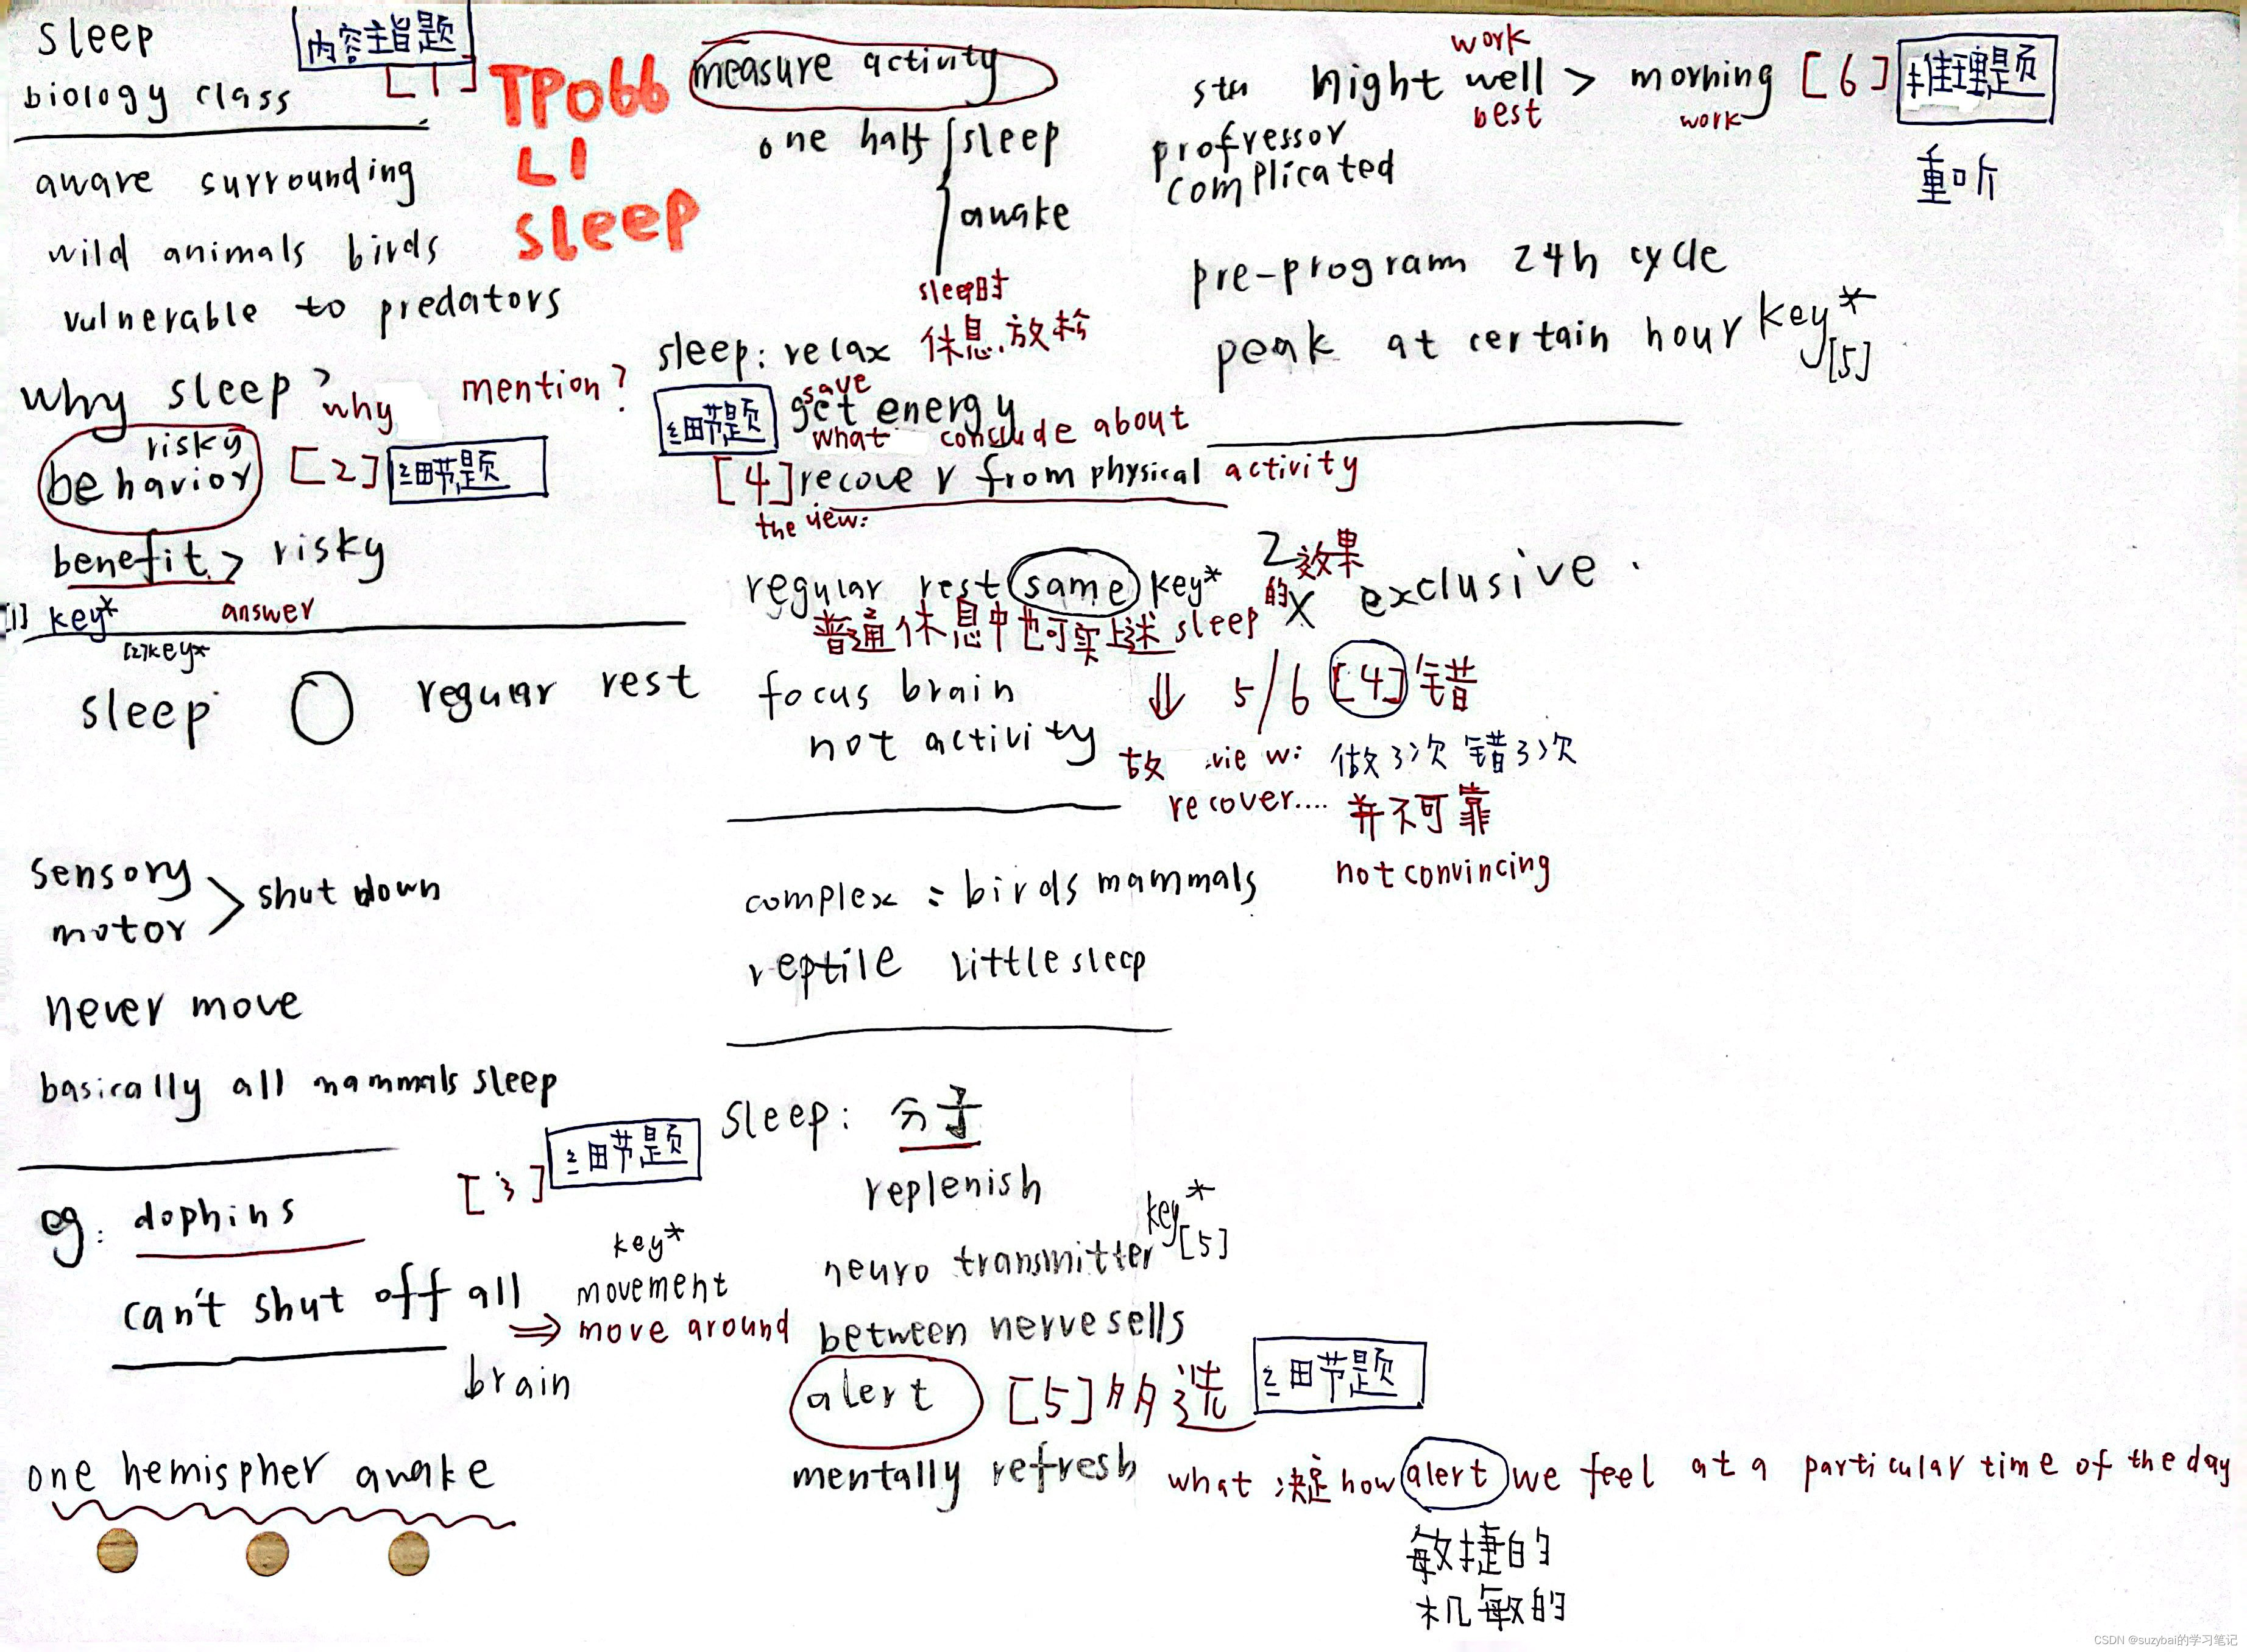 sleep
内容主旨题
biology class
[1]
TPO66
L1
sleep
aware surrounding
wild animals birds
vulnerable to predators
why sleep? why mention?
risky
behavior [2] 细节题
benefit > risky
[1] key* answer
[2]key*
sleep 〇 regular rest
sensory
motor > shut down
never move
basically all mammals sleep
[3] 细节题
eg: dophins
can't shut off all
brain
key*
movement
⇒ move around
one hemispher awake
measure activity
one half { sleep
awake
sleep时
sleep: relax 休息.放松
save
细节题 get energy
what conclude about
[4] recover from physical activity
the view:
regular rest same key* 2效果 X exclusive.
普通休息中也可实上述 sleep 的
focus brain
not activity
⇓ 5/6 [4] 错
故 view: 做3次 错3次
recover.... 并不可靠
not convincing
complex = birds mammals
reptile little sleep
sleep: 分子
replenish
key*
neuro transmitter [5]
between nerve sells
alert [5] 多选 细节题
mentally refresh what 决定 how alert we feel at a particular time of the day
敏捷的
机敏的
work
stu night well > morning [6] 推理题
best work
重听
profressor
complicated
pre-program 24h cycle
peak at certain hour key*
[5]
CSDN @suzybai的学习笔记